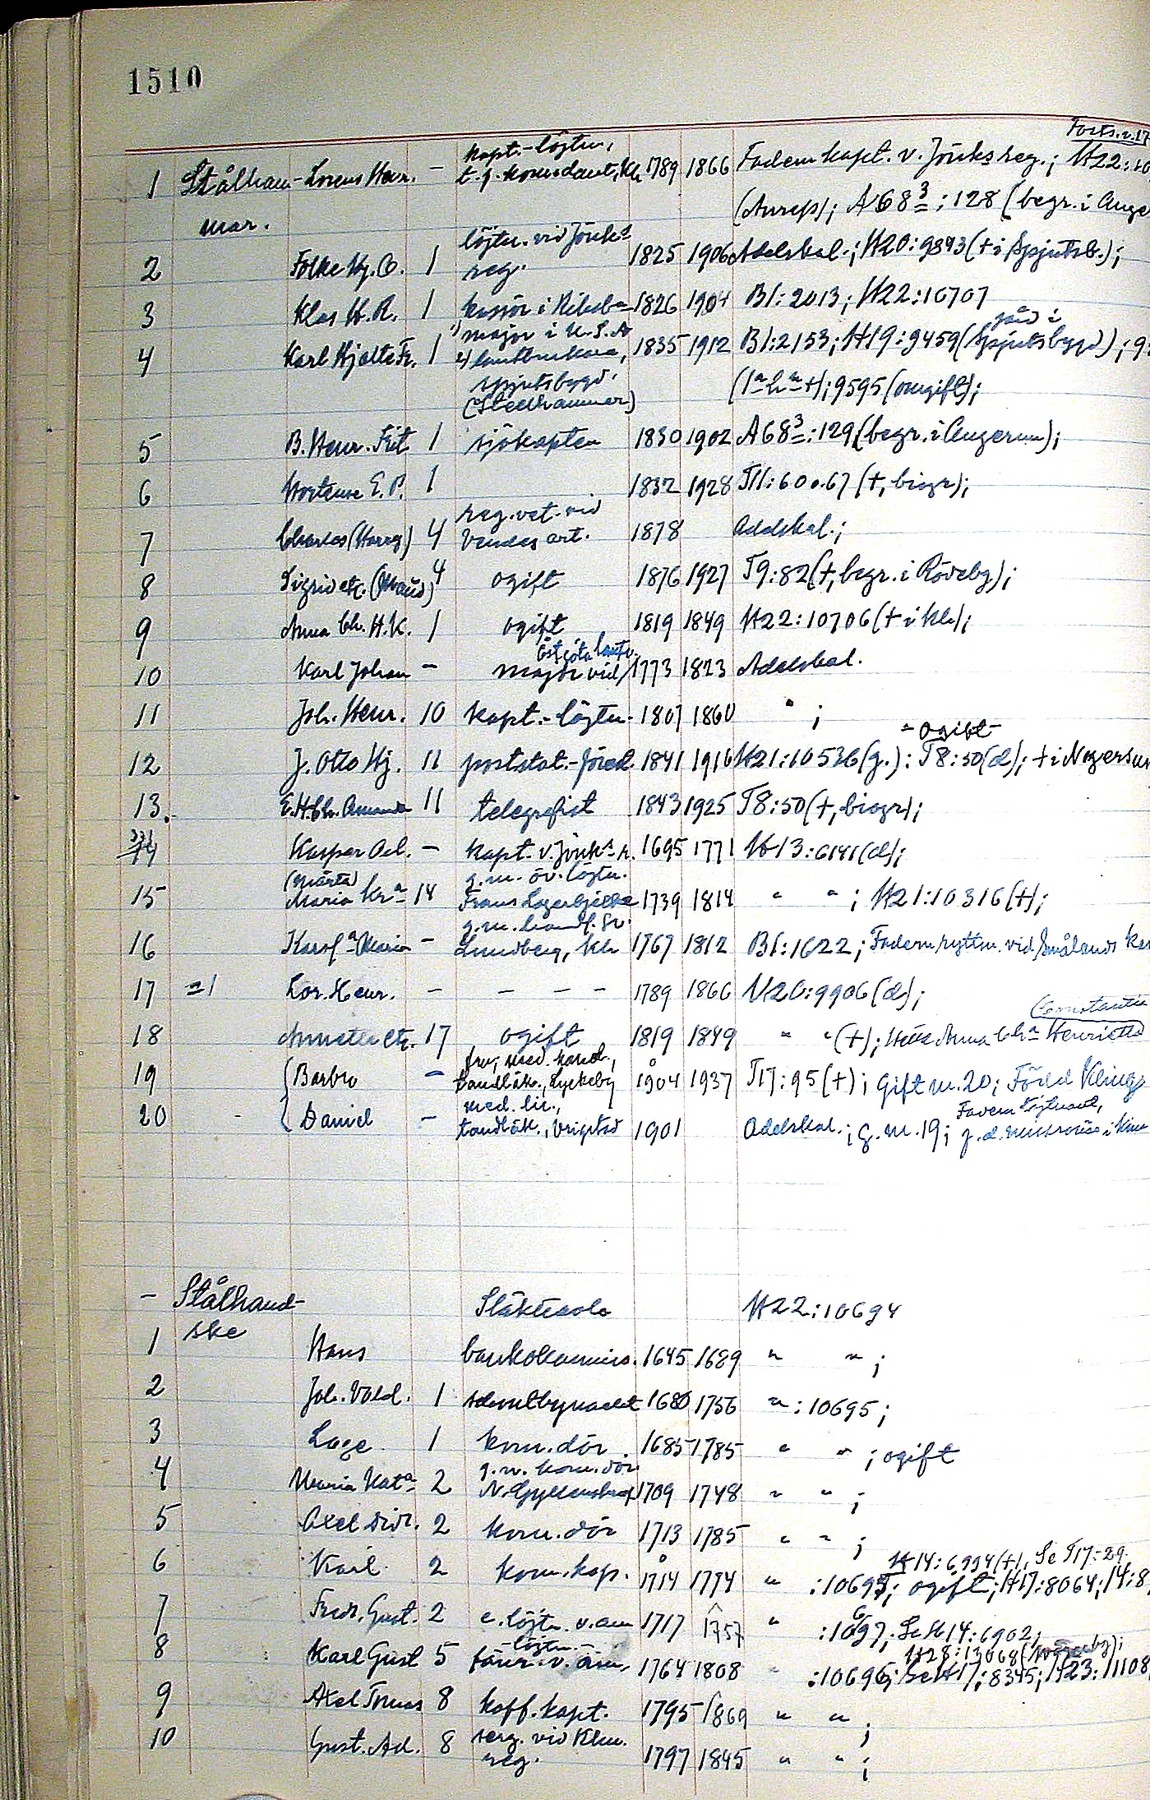 1510
Forts. s. 17
1 Stålham- Lorens Henr. - kapt.-löjtn., t.f. komendant, Kh 1789 1866 Fadern kapt. v. Jönks reg.; H22:10
mar. (Anrep); A68 3; 128 (begr. i Auge
2 Folke Hj. O. 1 löjtn. vid Jönks reg. 1825 1906 Adelskal.; H20:9843 († i Spjutsb.);
3 Klas H. R. 1 kassör i 1826 1904 B1:2013; H22:10707
4 Karl Hjalte Fr. 1 1) major i U.S.A 2) lantbrukare, Spjutsbygd, (Steelhammer) 1835 1912 B1:2153; H19:9459 (gård i Spjutsbygd); 9
(1a h. †); 9595 (omgift);
5 B. Henr. Frit. 1 sjökapten 1830 1902 A68 3: 129 (begr. i Augerum);
6 Hortense E. P. 1 1832 1928 T11:60 o. 67 (†, biogr);
7 Charles (Harry) 4 reg. vet. vid Vendes art. 1878 Adelskal.;
8 Sigrid etc. (Maud) 4 ogift 1876 1927 T9:82 (†, begr. i Rödeby);
9 Anna Ch. H. K. 1 ogift 1819 1849 H22:10706 († i Kh);
10 Karl Johan - major vid Östgöta lantv. 1773 1823 Adelskal.
11 Joh. Henr. 10 kapt.-löjtn. 1807 1860 " ;
12 J. Otto Hj. 11 poststat.-förest. 1841 1916 H21:10536 (g.); T8:50 (d); - ogift - † i Nogersun
13. E. H. Ch. Amanda 11 telegrafist 1843 1925 T8:50 (†, biogr);
14 Kasper Ad. - kapt. v. Jönks r. 1695 1771 H13:6141 (d);
15 (Märta) Maria Kra 14 g. m. öv. löjtn. Frans Lagerbjelke 1739 1814 " " ; H21:10316 (†);
16 Karol.a Maria - g. m. handl. Sv. Lundberg, Kh 1767 1812 B1:1622; Fadern ryttm. vid Smålands kav
17 =1 Lor. Henr. - - - - - 1789 1866 H20:9906 (d);
18 Annette etc. 17 ogift 1819 1849 " " (†); Anna Cha Henrietta (Constantia
19 (Barbro - fru, med. kand., tandläk., Lyckeby 1904 1937 T17:95 (†); gift m. 20; Född Kling
20 (Daniel - med. lic., tandläk., Vrigstad 1901 Adelskal.; g. m. 19; Fadern löjtnant,
- Stålhand- Släkttavla H22:10694
ske
1 Hans bankokommiss. 1645 1689 " " ;
2 Joh. Vold. 1 1680 1756 " : 10695;
3 Lage 1 kom.dör 1685 1785 " " ; ogift
4 Maria Kata 2 g. m. kom.dör N. Gyllenskep 1709 1748 " " ;
5 Axel Didr. 2 kom.dör 1713 1785 " " ;
6 Karl 2 kom. kap. 1714 1774 " : 10695; ogift; H14:6994 (†), Se T17:29 H17:8064; 14:8
7 Fredr. Gust. 2 e. löjtn. v. am 1717 1757 " : 1097; Se H14:6902;
8 Karl Gust 5 fänr. löjtn. v. am. 1764 1808 " : 10696; Se H17:8345; H23:11108 H28:13068
9 Axel Tomas 8 koff. kapt. 1795 1869 " " ;
10 Gust. Ad. 8 serg. vid Klm. reg. 1797 1845 " " ;